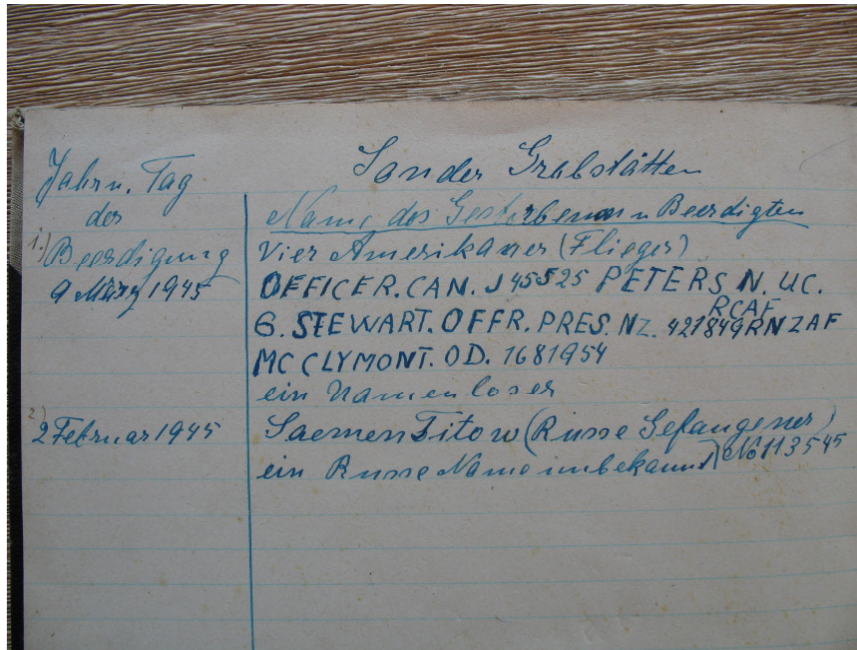 Sonder Grabstätten
Jahr u. Tag
der
1.) Beerdigung
9 März 1945
Name des Gestorbenen u Beerdigten
Vier Amerikaner (Flieger)
OFFICER. CAN. J 45525 PETERS N. UC.
RCAF
G. STEWART. OFFR. PRES. NZ. 421849 RNZAF
MC CLYMONT. OD. 1681954
ein Namenloser
2) 2 Februar 1945
Saemen Titow (Russe Gefangener)
No 113545
ein Russe Name unbekannt